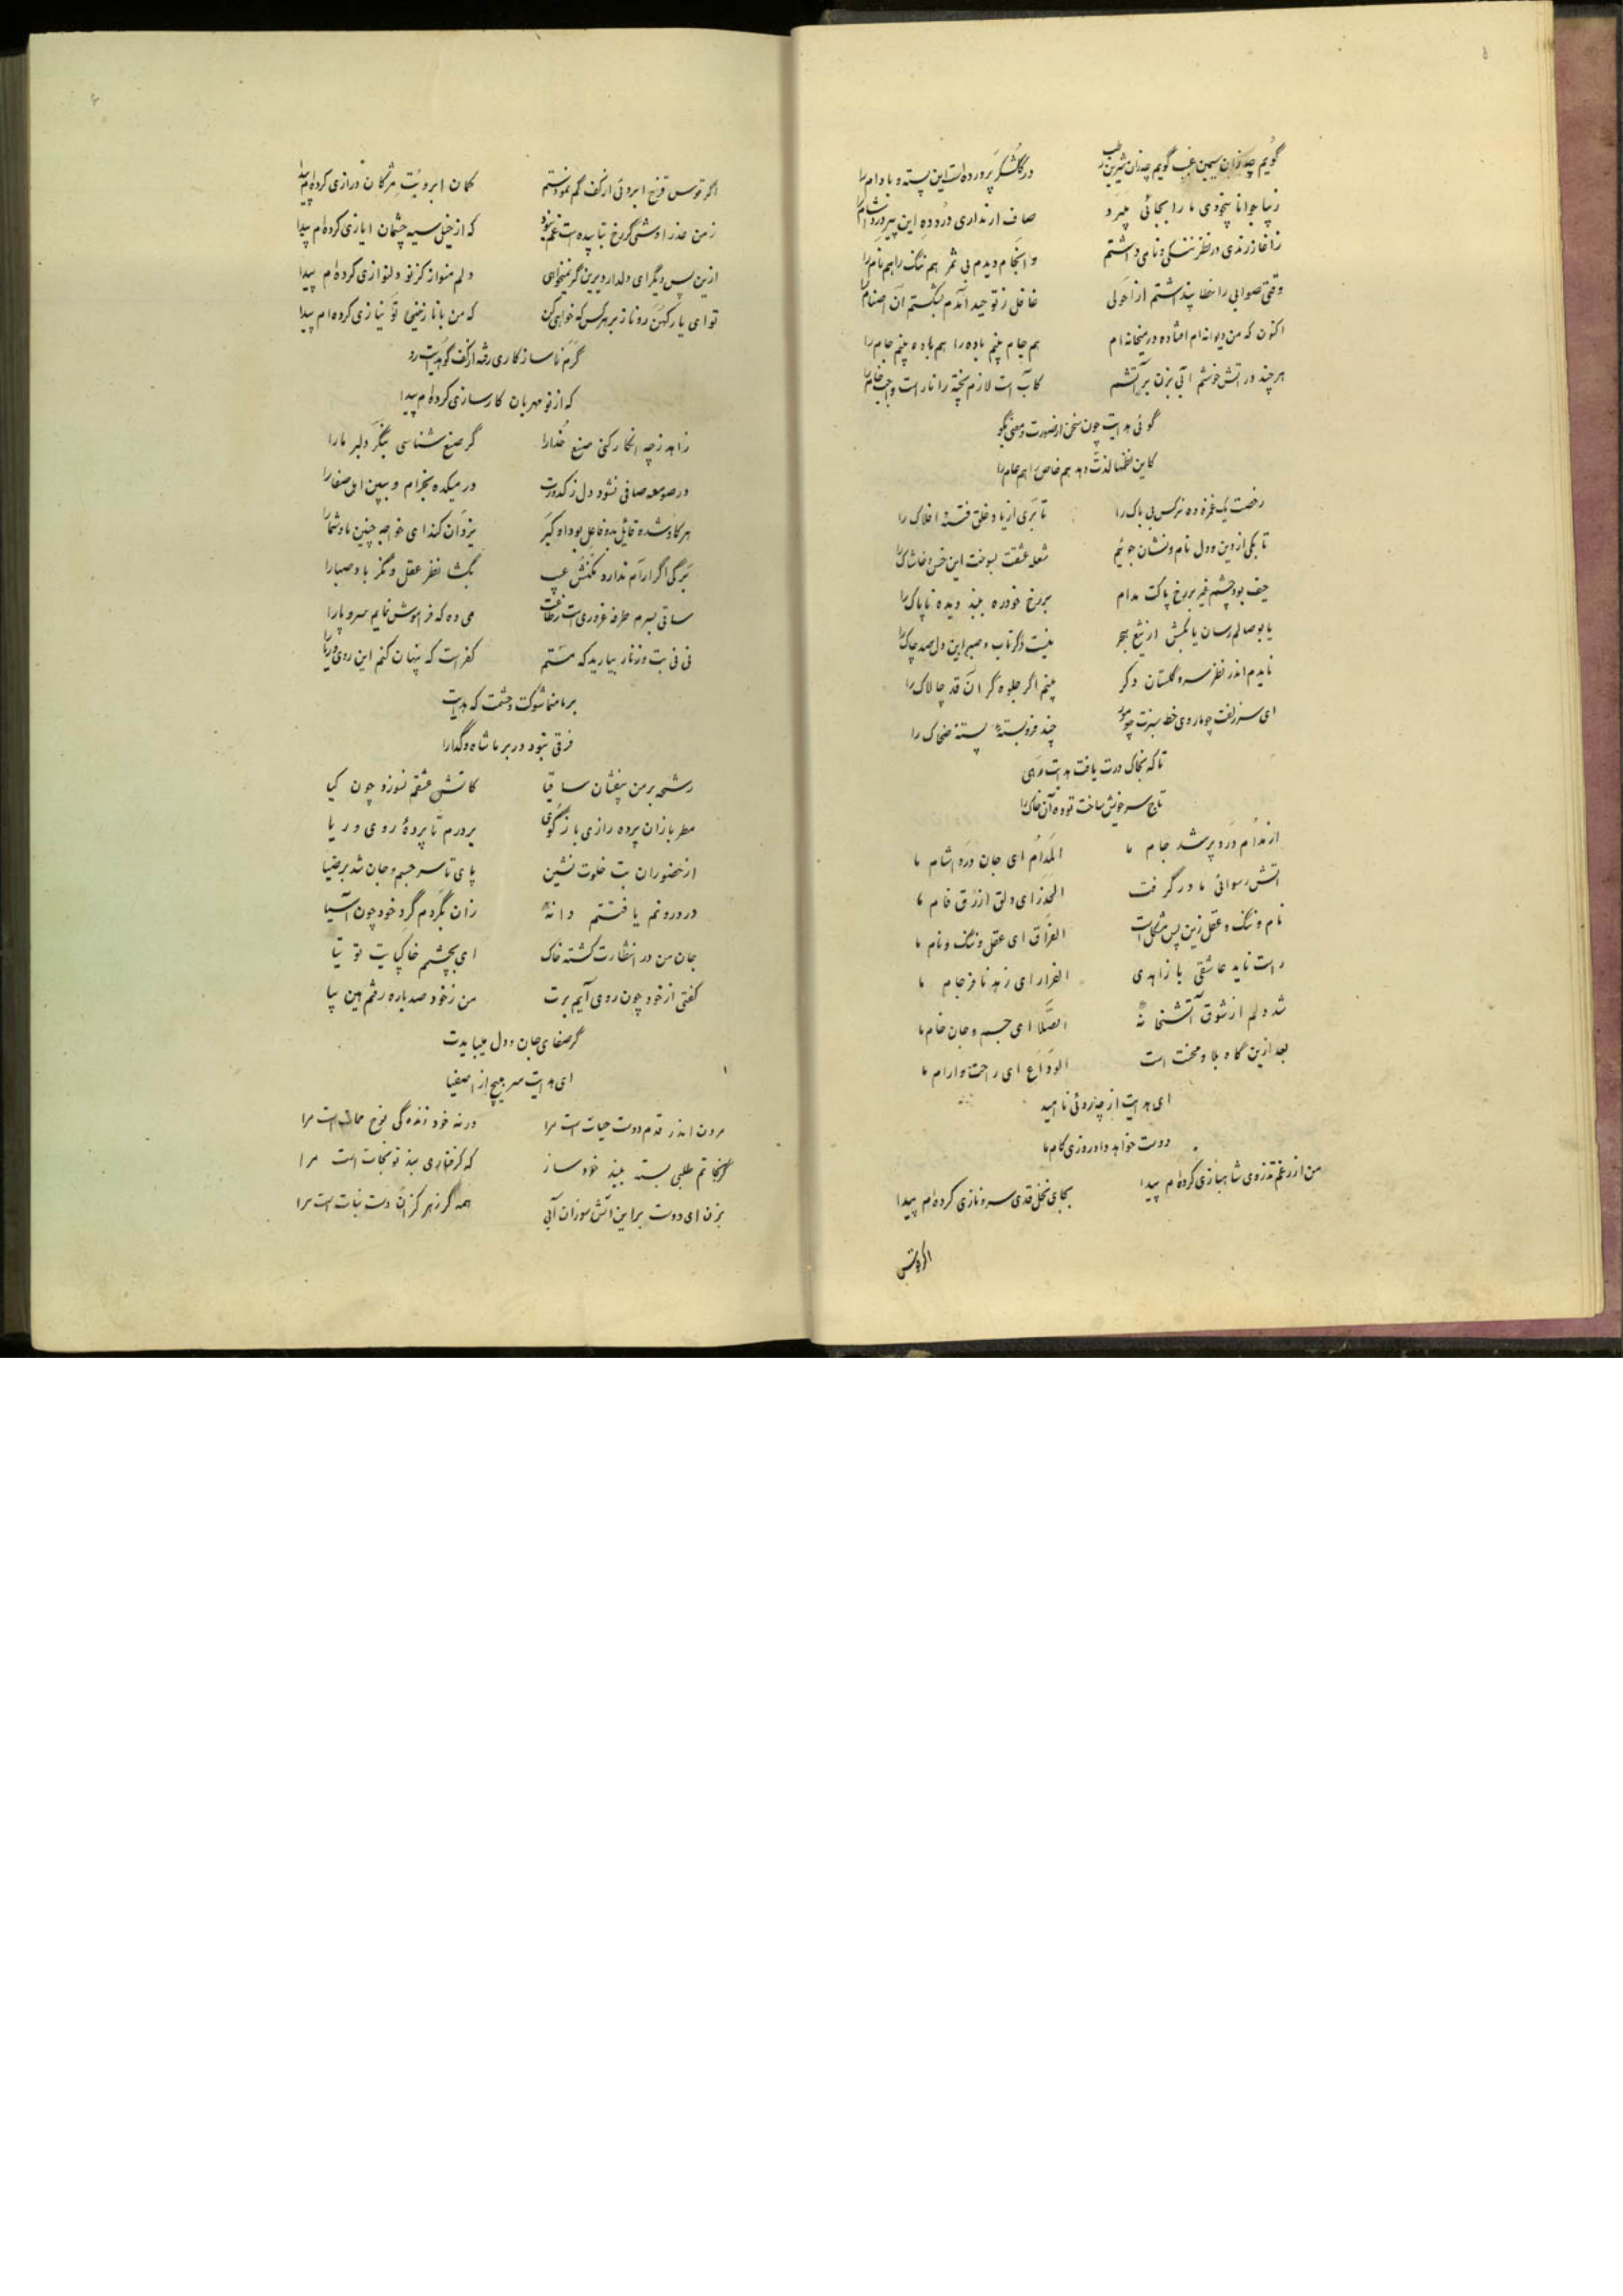 گویم چه زان سیمین غبب گویم چه زان شیرین رطب در گلشکر پرورده است این پسته و بادام را
زیبا جوانا بیخودی ما را بجائی میبرد صاف ار نداری درد ده این پیر درد آشام را
ز آغاز رندی در نظر ننگی و نامی داشتم و انجام دیدم بی ثمر هم ننگ را هم نام را
وقتی صوابی را خطا پنداشتم از احولی غافل ز توحید آمدم بشکستم آن اصنام را
اکنون که من دیوانه ام افتاده در میخانه ام هم جام بینم باده را هم باده بینم جام را
هر چند در آتش خوشم آبی بزن بر آتشم کآب است لازم پخته را نار است واجب خام را
گوئی هدایت چون سخن از صورت و معنی بگو
کاین نظمها لذت دهد هم خاص را هم عام را
رخصت یک غمزه ده نرگس بی باک را تا بری از یاد خلق فتنه افلاک را
تا بکی از دین و دل نام و نشان جوئیم شعله عشقت بسوخت این خس و خاشاک را
حیف بود چشم غیر بر رخ پاکت مدام بر رخ خود ره مبند دیده ناپاک را
یا بوصالم رسان یا بکش از تیغ هجر نیست دگر تاب و صبر این دل صد چاک را
نایدم اندر نظر سرو گلستان دگر بینم اگر جلوه گر آن قد چالاک را
ای سر زلفت چو مار وی خط سبزت چو مور چند فرو بستهٔ پسته ضحاک را
تا که بخاک درت یافت هدایت رهی
تاج سر خویش ساخت توده آن خاک را
از مدام درد پر شد جام ما المدام ای جان درد آشام ما
آتش رسوائی ما در گرفت الحذر ای دلق ازرق فام ما
نام و ننگ و عقل زین پس مشکل است الفراق ای عقل و ننگ و نام ما
راست ناید عاشقی با زاهدی الفرار ای زهد نافرجام ما
شد دلم از شوق آتشخانهٔ الصلا ای جسم و جان خام ما
بعد ازین گاه بلا و محنت است الوداع ای راحت و آرام ما
ای هدایت از چه روئی ناامید
دوست خواهد داد روزی کام ما
من از رغم تذروی شاهبازی کرده ام پیدا بجای نخل قدی سرو نازی کرده ام پیدا
اگر قوس
اگر قوس قزح ابروئی از کف گم نمودستم کمان ابرویت مژگان درازی کرده ام پیدا
ز من عذرا وشی گر رخ بتابیده است غم نبود که از خیل سیه چشمان ایازی کرده ام پیدا
ازین پس دیگر ای دلدار دیرین گر نمیخواهی دلم منواز کز نو دلنوازی کرده ام پیدا
تو ای یار کهن رو ناز بر هر کس که خواهی کن که من با نازنینی نو نیازی کرده ام پیدا
گرم ناسازگاری رفت از کف گو هدایت رو
که از نو مهربان کارسازی کرده ام پیدا
زاهد ز چه انکار کنی صنع خدا را گر صنع شناسی بنگر دلبر ما را
در صومعه صافی نشود دل ز کدورت در میکده بخرام و ببین اهل صفا را
یزدان کند ای خواجه چنین ما و شما را
برگی اگر آرام ندارد مکنش عیب بگشا نظر عقل و نگر باد صبا را
می ده که فراموش نمایم سر و پا را
نی نی بت و زنار بیارید که مستم کفر است که پنهان کنم این روی و ریا را
بر ما منما شوکت و حشمت که هدایت
فرقی نبود در بر ما شاه و گدا را
رشحه بر من بیفشان ساقیا کاتش عشقم نسوزد چون گیا
مطربا زان پرده رازی بازگوی بردرم تا پردهٔ روی و ریا
از حضور آن بت خلوت نشین پای تا سر جسم و جان شد پر ضیا
در درونم یافتستم دانهٔ زان بگردم گرد خود چون آسیا
جان من در انتظارت گشته خاک ای بچشم خاکپایت توتیا
گفتی از خود چون روی آیم برت من ز خود صد باره رفتم هین بیا
گر صفای جان و دل میبایدت
ای هدایت سر مپیچ از اصفیا
مردن اندر قدم دوست حیات است مرا ورنه خود زندگی نوح ممات است مرا
گر نجاتم طلبی بسته ببند خود ساز که گرفتاری بند تو نجات است مرا
بزن ای دوست براین آتش سوزان آبی همه گر زهر کز آن دست نبات است مرا